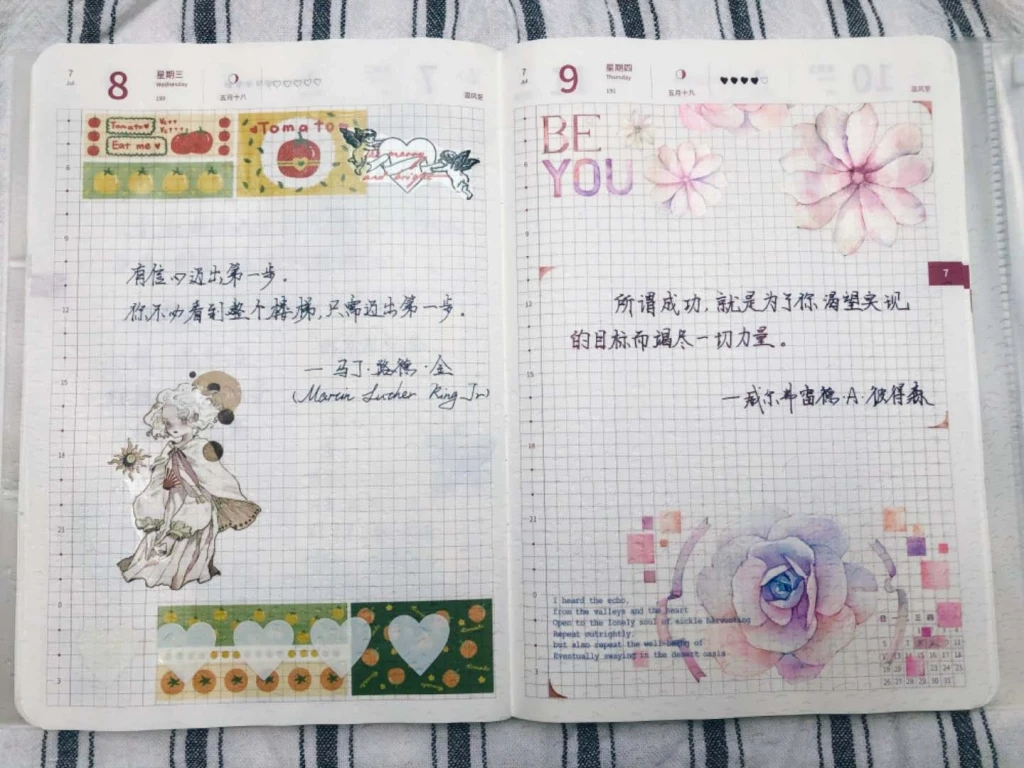 7
Jul
8
星期三
Wednesday
190
五月十八
温风至
Tomato
Eat me
Tomato
有信心迈出第一步.
你不必看到整个楼梯,只需迈出第一步.
— 马丁·路德·金
(Martin Luther King Jr)
6
9
12
15
18
21
0
3
7
Jul
9
星期四
Thursday
191
五月十九
温风至
BE
YOU
7
所谓成功,就是为了你渴望实现
的目标而竭尽一切力量。
—威尔弗雷德·A·彼得森
I heard the echo,
from the valleys and the heart
Open to the lonely soul of sickle harvesting
Repeat outrightly,
but also repeat the well-being of
Eventually swaying in the desert oasis
日 一 二 三 四